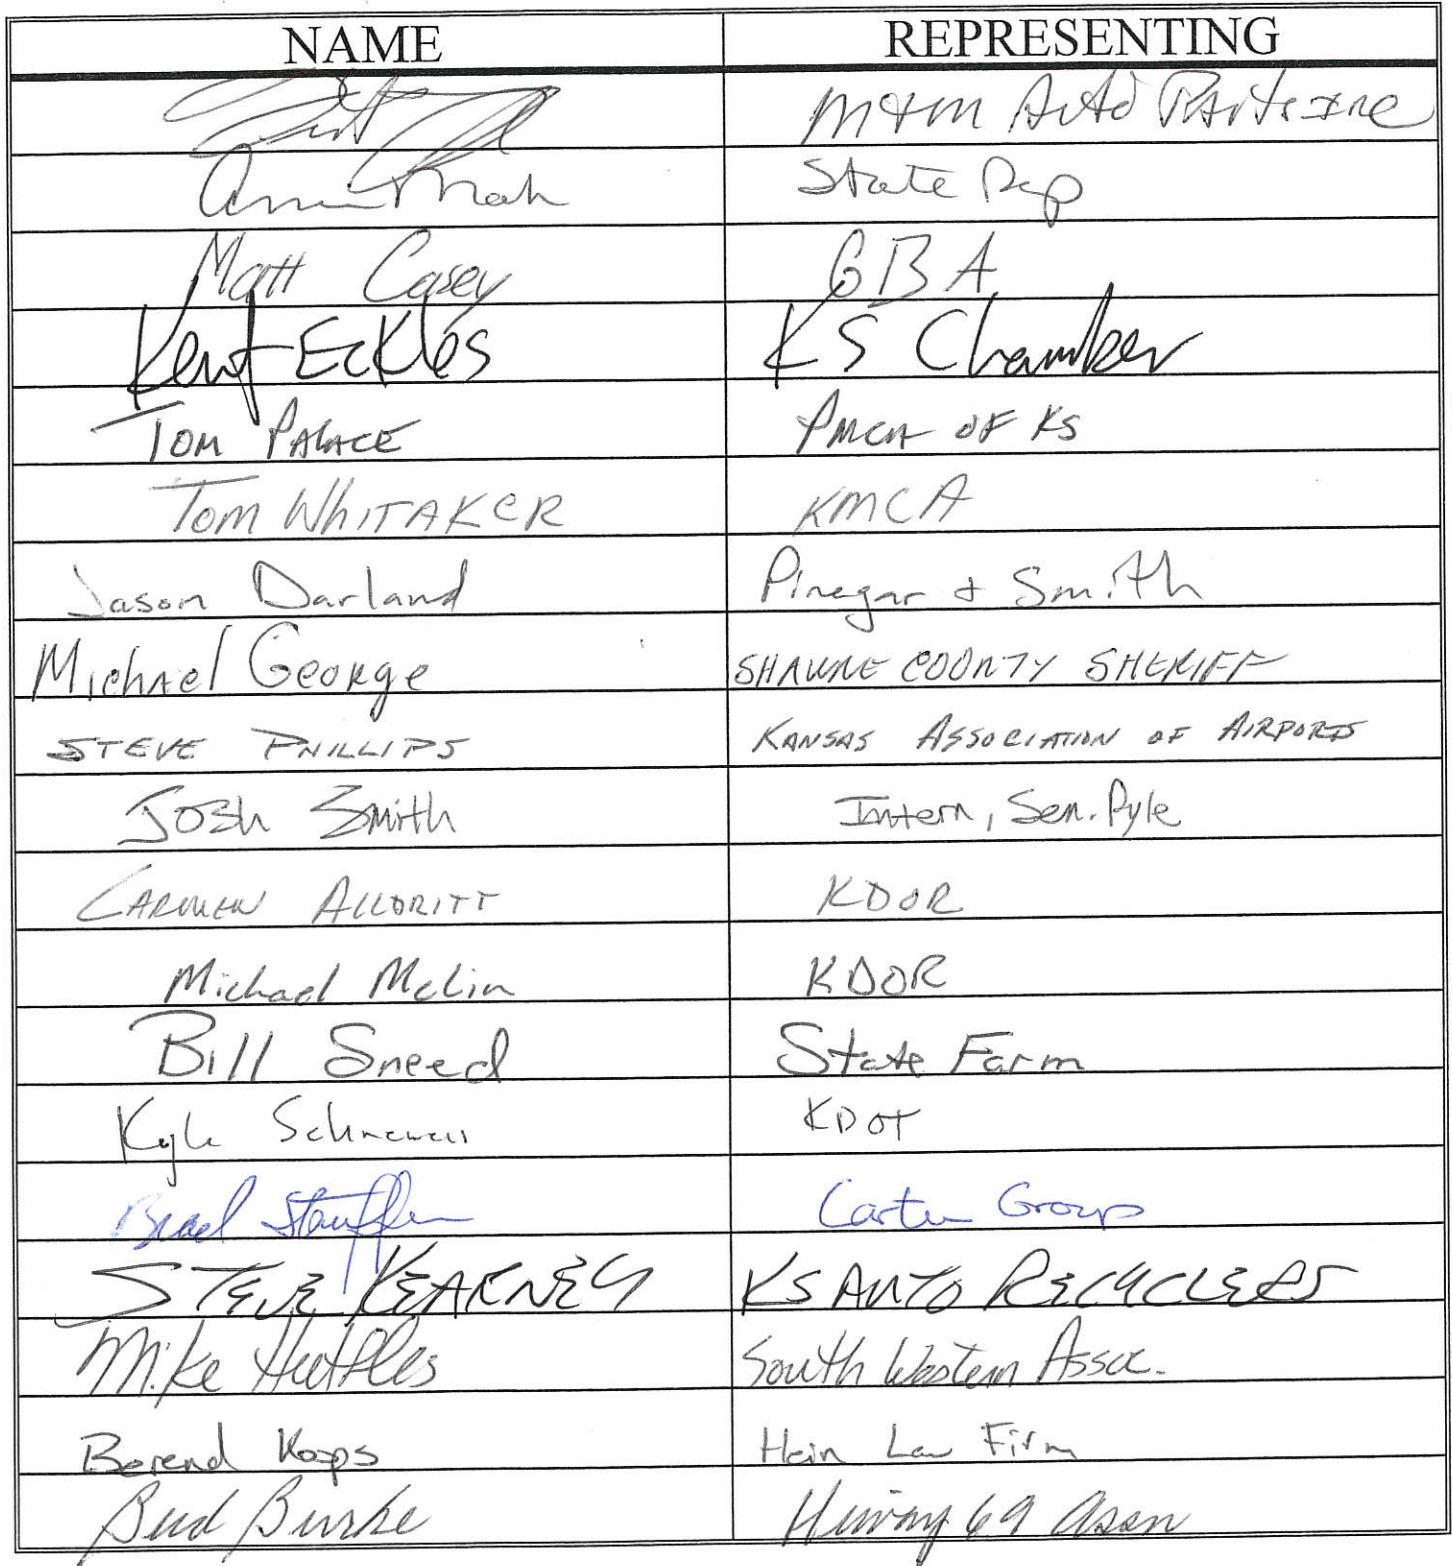 NAME REPRESENTING
M&M Auto Parts Inc
State Rep
Matt Casey GBA
Kent Eckles KS Chamber
Tom Palace PMCA of KS
Tom Whitaker KMCA
Jason Darland Pinegar & Smith
Michael George SHAWNE COUNTY SHERIFF
STEVE PHILLIPS KANSAS ASSOCIATION OF AIRPORTS
Josh Smith Intern, Sen. Pyle
CARMEN ALLDRITT KDOR
Michael McLin KDOR
Bill Sneed State Farm
Kyle KDOT
Brad Stauffer Carter Group
STEVE KEARNEY KS AUTO RECYCLERS
Mike Huttles South Western Assoc.
Berend Koops Hein Law Firm
Bud Burke Hiway 69 Assn